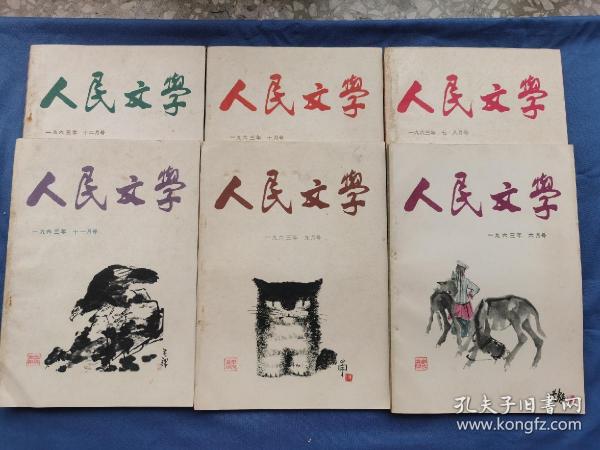 人民文学
一九六三年 十二月号
人民文学
一九六三年 十月号
人民文学
一九六三年 七·八月号
人民文学
一九六三年 十一月号
人民文学
一九六三年 九月号
人民文学
一九六三年 六月号
孔夫子旧书网
www.kongfz.com